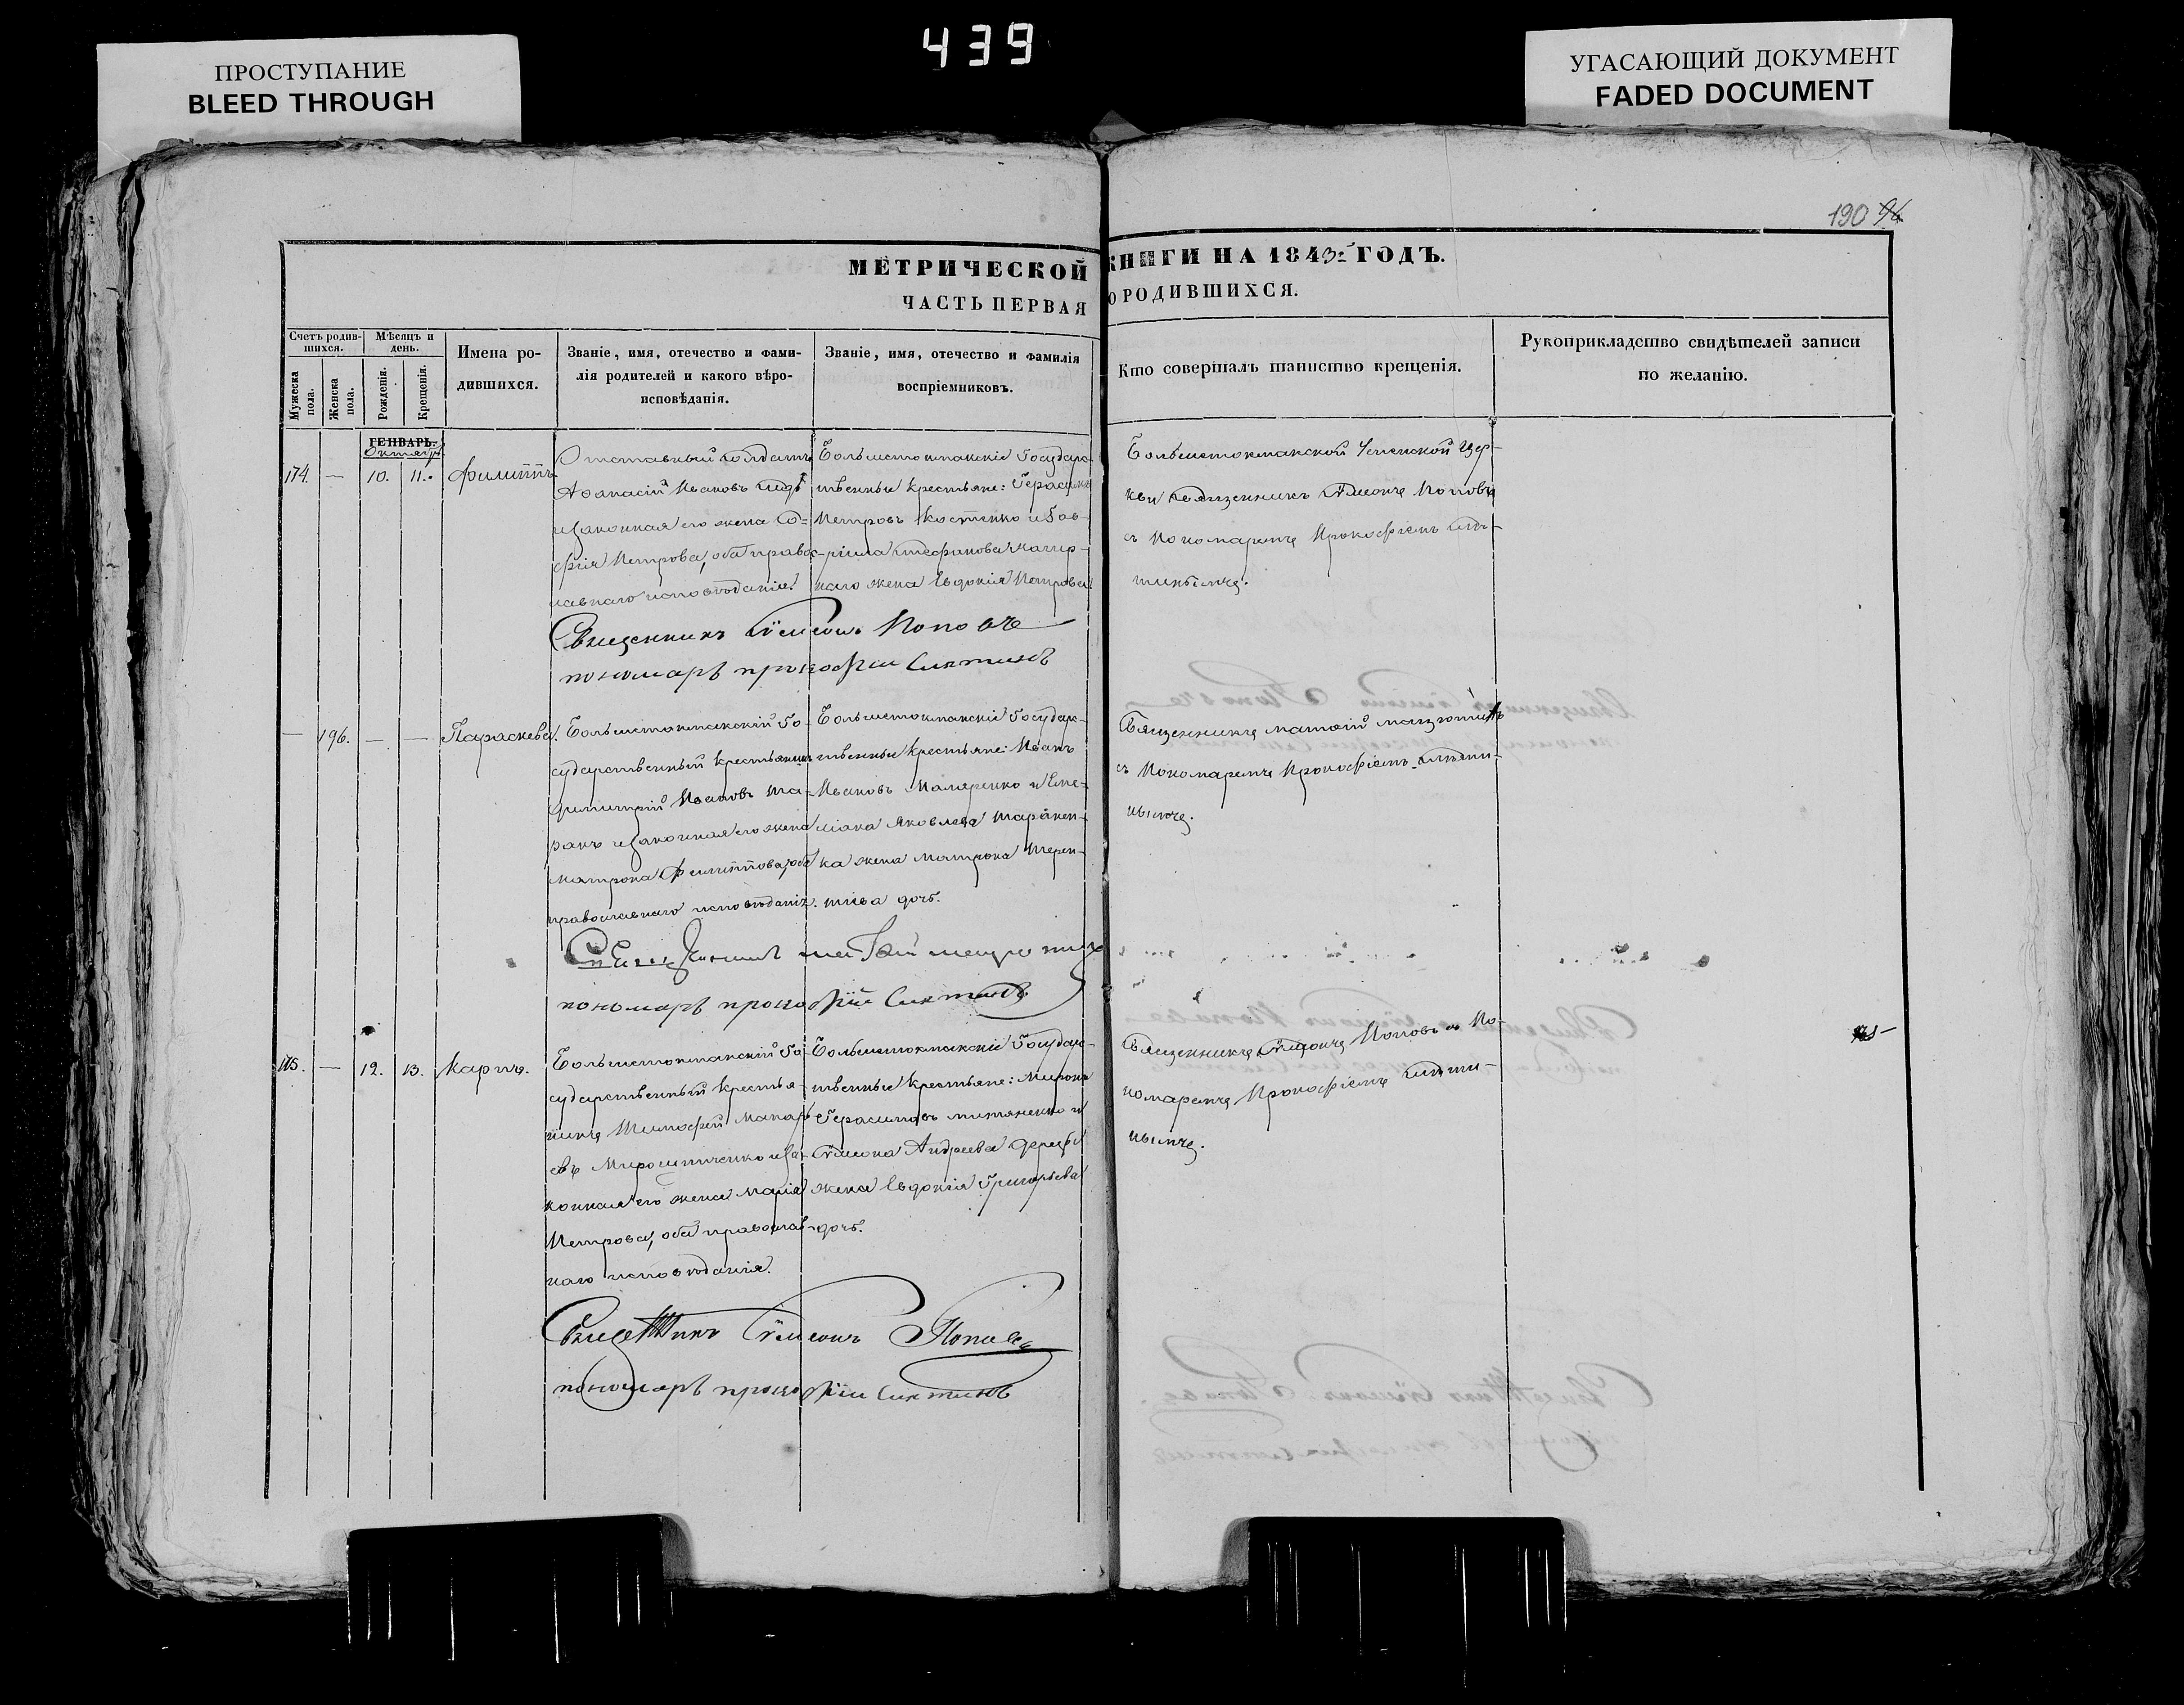 439
ПРОСТУПАНИЕ
BLEED THROUGH
УГАСАЮЩИЙ ДОКУМЕНТ
FADED DOCUMENT
190 96
МЕТРИЧЕСКОЙ КНИГИ НА 1843 ГОДЪ.
ЧАСТЬ ПЕРВАЯ О РОДИВШИХСЯ.
Счетъ родив-
шихся.
Мужеска
пола.
Женска
пола.
Мѣсяцъ и
день.
Рожденія.
Крещенія.
Имена ро-
дившихся.
Званіе, имя, отечество и фами-
лія родителей и какого вѣро-
исповѣданія.
Званіе, имя, отечество и фамилія
воспріемниковъ.
Кто совершалъ таинство крещенія.
Рукоприкладство свидѣтелей записи
по желанію.
ГЕНВАРЬ.
Октябрь
174. — 10. 11. Филиппъ
Отставный солдатъ
Аѳанасій Ивановъ
и законная его жена Со-
фія Петрова, оба правос-
лавнаго исповѣданія.
Большетокмакскіе Государс-
твенные крестьяне: Герасимъ
Петровъ Костенко и Гав-
ріила Стефанова
жена Евдокія Петрова
Большетокмакской Успенской Цер-
кви Священникъ Сѷмеонъ Поповъ
съ Пономаремъ Прокофіемъ
Священникъ Сѷмеонъ Поповъ
пономарь прокофій
— 196. — — Параскева.
Большетокмакскій Го-
сударственный крестьянинъ
Димитрій Ивановъ Та-
ранъ и законная его жена
Матрона Филиппова, оба
православнаго исповѣданія.
Большетокмакскіе Государс-
твенные крестьяне: Иванъ
Ивановъ и Еме-
ліана Яковлева Таранен-
ка жена Матрона Терен-
тіева дочь.
Священникъ Матѳій
съ Пономаремъ Прокофіемъ
нымъ.
пономарь прокофій
175. — 12. 13. Карпъ.
Большетокмакскій Го-
сударственный крестья-
нинъ Тимофей Макарь-
евъ Мирошниченко и за-
конная его жена Марія
Петрова, оба православ-
наго исповѣданія.
Большетокмакскіе Государс-
твенные крестьяне: Миронъ
Герасимовъ и
Сѷмеона Андреева
жена Евдокія Григорьева
дочь.
Священникъ Сѷмеонъ Поповъ съ По-
номаремъ Прокофіемъ
нымъ.
Священникъ Сѷмеонъ Поповъ
пономарь прокофій